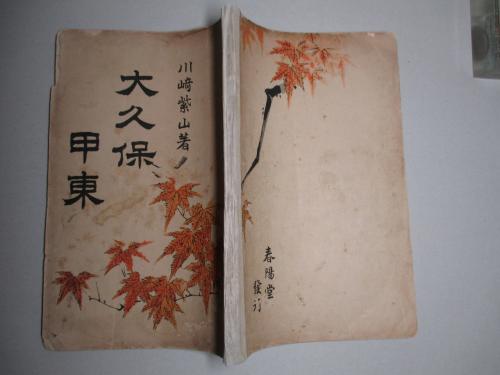 川﨑紫山著
大久保
甲東
春陽堂
發行